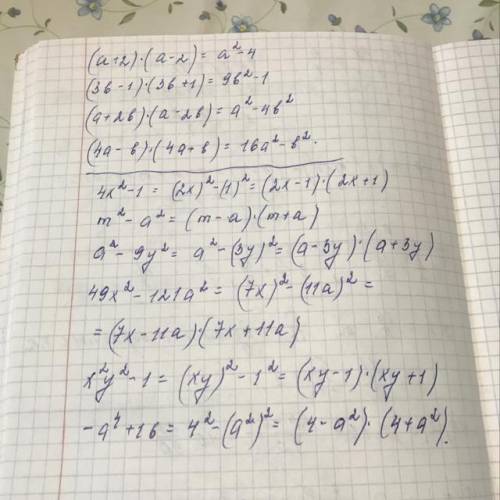 (a+2)·(a-2)= a²-4
(3b-1)·(3b+1)=9b²-1
(a+2b)·(a-2b)=a²-4b²
(4a-b)·(4a+b)=16a²-b².
4x²-1= (2x)²-(1)²=(2x-1)·(2x+1)
m²-a²=(m-a)·(m+a)
a²-9y²= a²-(3y)²=(a-3y)·(a+3y)
49x²-121a²= (7x)²-(11a)²=
=(7x-11a)·(7x+11a)
x²y²-1=(xy)²-1²=(xy-1)·(xy+1)
-a⁴+16=4²-(a²)²=(4-a²)·(4+a²).